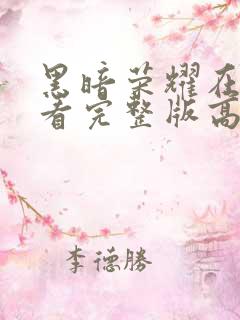 黑暗荣耀在
看完整版高
李德勝